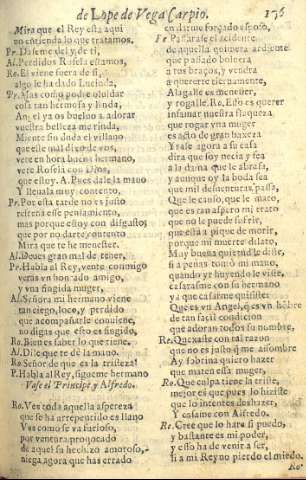 de Lope de Vega Carpio. 176
Mira que el Rey esta aqui
no entienda lo que tratamos.
Pr. Daseme del, y de ti,
Al. Perdidos Rosela estamos,
Re. El viene fuera de si,
algo le ha dado Lucinda,
Pr. Mas como podre oluidar
cosa tan hermosa y linda,
An, el ya os bueluo a adorar
vuestra belleza me rinda,
Miente sin duda el villano
que este mal dizo de vos,
vete en hora bueno hermano,
vete Rosela con Dios,
que estoy. A. Pues dale la mano
Y lleuala muy contento,
Pr. Por esta tarde no es justo
refrena esse pensamiento,
mas porque estoy con disgusto;
que por no darte contento
Mira que te he menester.
Al. Deues gran mal de tener,
Pr. Habla al Rey, vente conmigo
veras vn honrado amigo,
y vna fingida muger,
Al. Señora mi hermano viene
tan ciego, loco, y perdido
que acompañarle conuiene,
no diga que esto es fingido,
Ro. Bien es saber lo que tiene.
Al. Dile que te dè la mano.
Ro. Señor de que es la tristeza!
P. Habla al Rey, sigueme hermano
Vase el Principe y Alfredo.
Ro. Ves toda aquella aspereza
que se ha arrepentido es llano
Ves como se va furioso,
por ventura prouocado
de aquel su hechizo amoroso,
niega agora que has errado
en darme forçado esposo,
Fe. Passarale el accidente
de aquella quimera ardiente
que passado boluera
a tus braços, y vendra
a quererte tiernamente,
Alagalle es menester,
y rogalle. Ro. Esso es querer
infamar nuestra flaqueza
que rogar vna muger
es acto de gran baxeza
Y sale agora a su casa
dira que soy necia y fea
a la dama que le abrasa,
y aunque oy la boda sea
que mil desuenturas passa,
Que le canso, que le mato,
que es tan aspero mi trato
que no le puede sufrir,
que està a pique de morir,
porque mi muerte dilato,
Muy buena quietud le diste,
si a penas tomò mi mano,
quando yr huyendo le viste,
casarasme con su hermano
ya que casarme quisiste
Que es vn Angel, q̃ es vn hõbre
de tan facil condicion
que adoran todos su nombre,
Re. Quexaste con tal razon
que no es justo q̃ me assombre
Ay sobrina quiero hazer
que maten essa muger,
Ro. Que culpa tiene la triste,
mejor es que pues lo hiziste
que lo intentes deshazer,
Y casame con Alfredo.
Re. Cree que lo harè si puedo,
y bastante es mi poder,
y esto ha de venir a ser,
si a mi Rey no pierdo el miedo.
Ro.